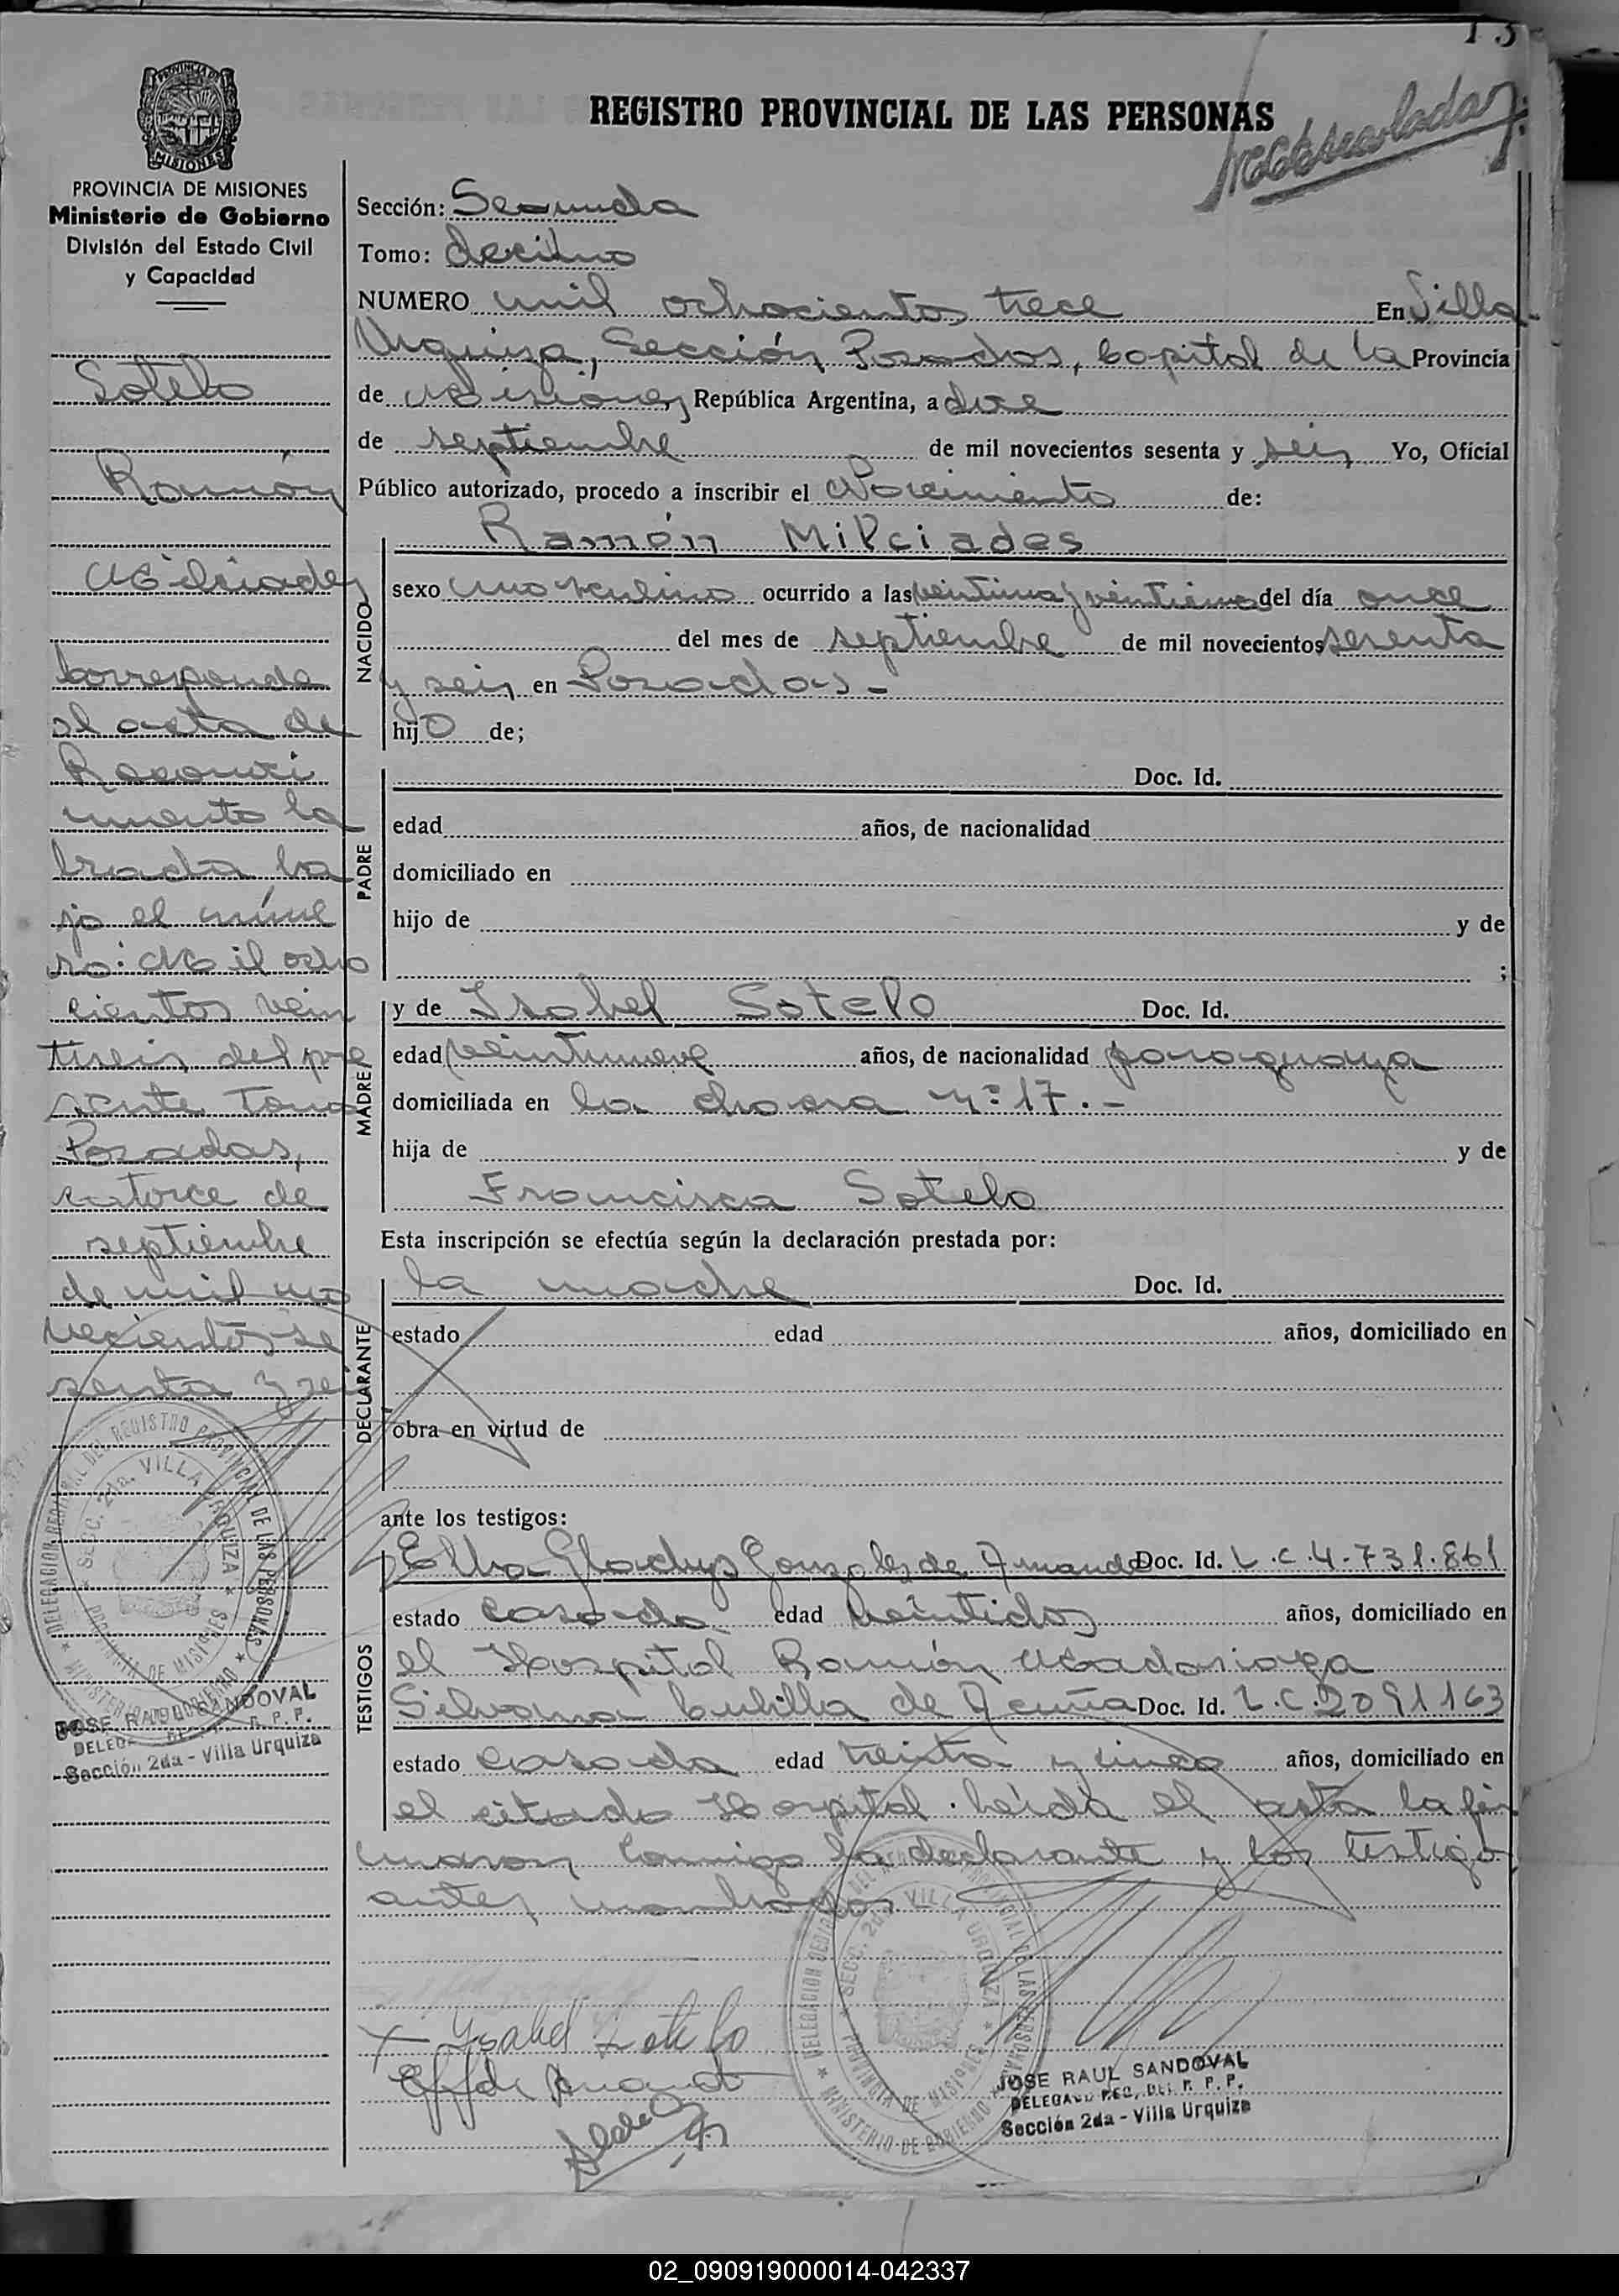 13
REGISTRO PROVINCIAL DE LAS PERSONAS
PROVINCIA DE MISIONES
MISIONES
PROVINCIA DE MISIONES
Ministerio de Gobierno
División del Estado Civil
y Capacidad
Sotelo
Ramón
Milciades
Corresponde
al acta de
Reconoci
miento la
brada ba
jo el núme
ro: Mil ocho
cientos vein
tiseis del pre
sente Tomo
Posadas,
catorce de
septiembre
de mil no
vecientos se
senta y seis
DELEGACION REGIONAL DEL REGISTRO PROVINCIAL DE LAS PERSONAS
SECC. 2da. VILLA URQUIZA
PROVINCIA DE MISIONES
MINISTERIO DE GOBIERNO
JOSE RAUL SANDOVAL
DELEG R. P. P.
Sección 2da - Villa Urquiza
Sección: Segunda
Tomo: décimo
NUMERO mil ochocientos trece En Villa
Urquiza, Sección Posadas, Capital de la Provincia
de Misiones República Argentina, a doce
de septiembre de mil novecientos sesenta y seis Yo, Oficial
Público autorizado, procedo a inscribir el Nacimiento de:
NACIDO
Ramón Milciades
sexo masculino ocurrido a las veintiuna y veintiuno del día once
del mes de septiembre de mil novecientos sesenta
y seis en Posadas.-
hijo de;
PADRE
Doc. Id.
edad años, de nacionalidad
domiciliado en
hijo de y de
;
MADRE
y de Isabel Sotelo Doc. Id.
edad veintinueve años, de nacionalidad paraguaya
domiciliada en la chacra nº 17.-
hija de y de
Francisca Sotelo
Esta inscripción se efectúa según la declaración prestada por:
DECLARANTE
la madre Doc. Id.
estado edad años, domiciliado en
obra en virtud de
ante los testigos:
TESTIGOS
Elba Gladys Gonzalez de Amando Doc. Id. L.C.4.731.861
estado casada edad veintidos años, domiciliado en
el Hospital Ramón Madariaga
Silvana Cubilla de Acuña Doc. Id. L.C.2091163
estado casada edad treinta y cinco años, domiciliado en
el citado Hospital. Leída el acta la fir
maron conmigo la declarante y los testigos
antes nombrados
Ysabel Sotelo
DELEGACION REGIONAL DEL REGISTRO PROVINCIAL DE LAS PERSONAS
SECC. 2da. VILLA URQUIZA
PROVINCIA DE MISIONES
MINISTERIO DE GOBIERNO
JOSE RAUL SANDOVAL
DELEGADO REG. DEL R. P. P.
Sección 2da - Villa Urquiza
02_090919000014-042337